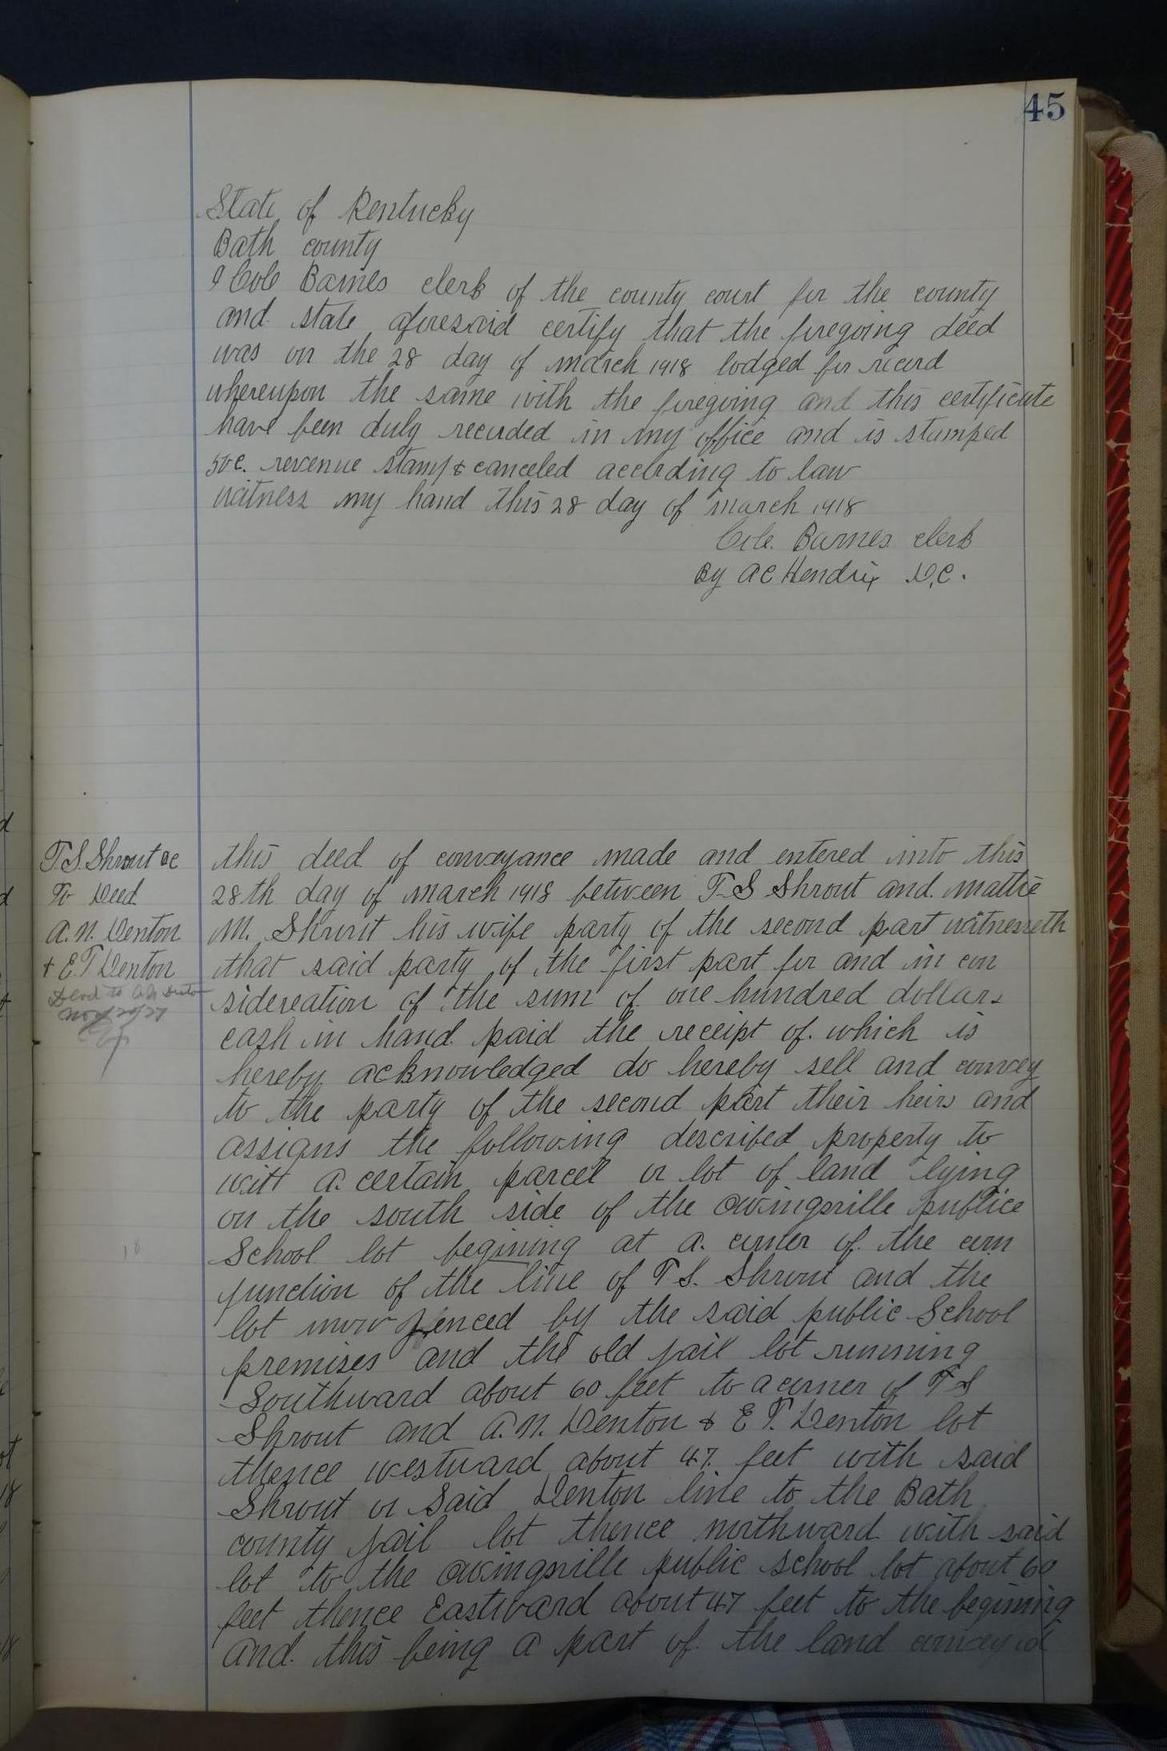 45
State of Kentucky
Bath county
I Cole Barnes clerk of the county court for the county
and state aforesaid certify that the foregoing deed
was on the 28 day of march 1918 lodged for record
whereupon the same with the foregoing and this certificate
have been duly recorded in my office and is stamped
50c. revenue stamp & canceled according to law
witness my hand this 28 day of march 1918
Cole. Barnes clerk
By A C Hendrix D.C.
T.S. Shrout &c
To Deed
A. N. Denton
+ E. T. Denton
Nov 29/27
this deed of conveyance made and entered into this
28th day of march 1918 between T S Shrout and mattie
M. Shrout his wife party of the second part witnesseth
that said party of the first part for and in con
sidereation of the sum of one hundred dollars
cash in hand paid the receipt of which is
hereby acknowledged do hereby sell and convey
to the party of the second part their heirs and
assigns the following described property to
witt a certain parcel or lot of land lying
on the south side of the Owingsville publice
School lot begining at a corner of the con
junction of the line of T S. Shrout and the
lot now fenced by the said public School
premises and the old jail lot running
Southward about 60 feet to a corner of T S
Shrout and A. N. Denton & E T. Denton lot
thence westward about 47 feet with said
Shrout or said Denton line to the Bath
county jail lot thence northward with said
lot to the Owingsville public school lot about 60
feet thence Eastward about 47 feet to the begining
and this being a part of the land conveyed